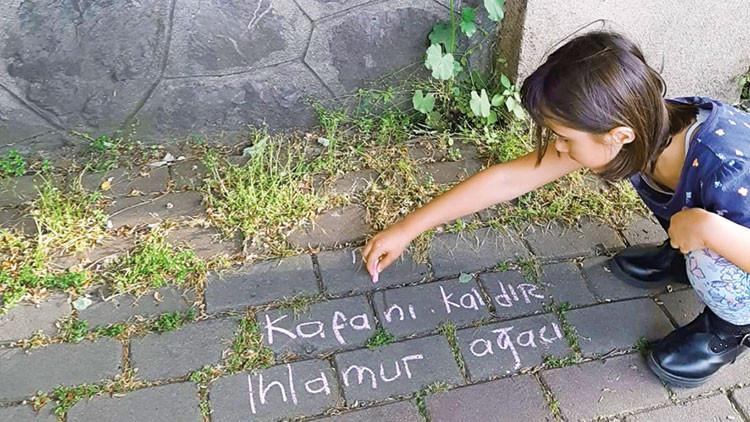 Kafanı kaldır
Ihlamur ağacı